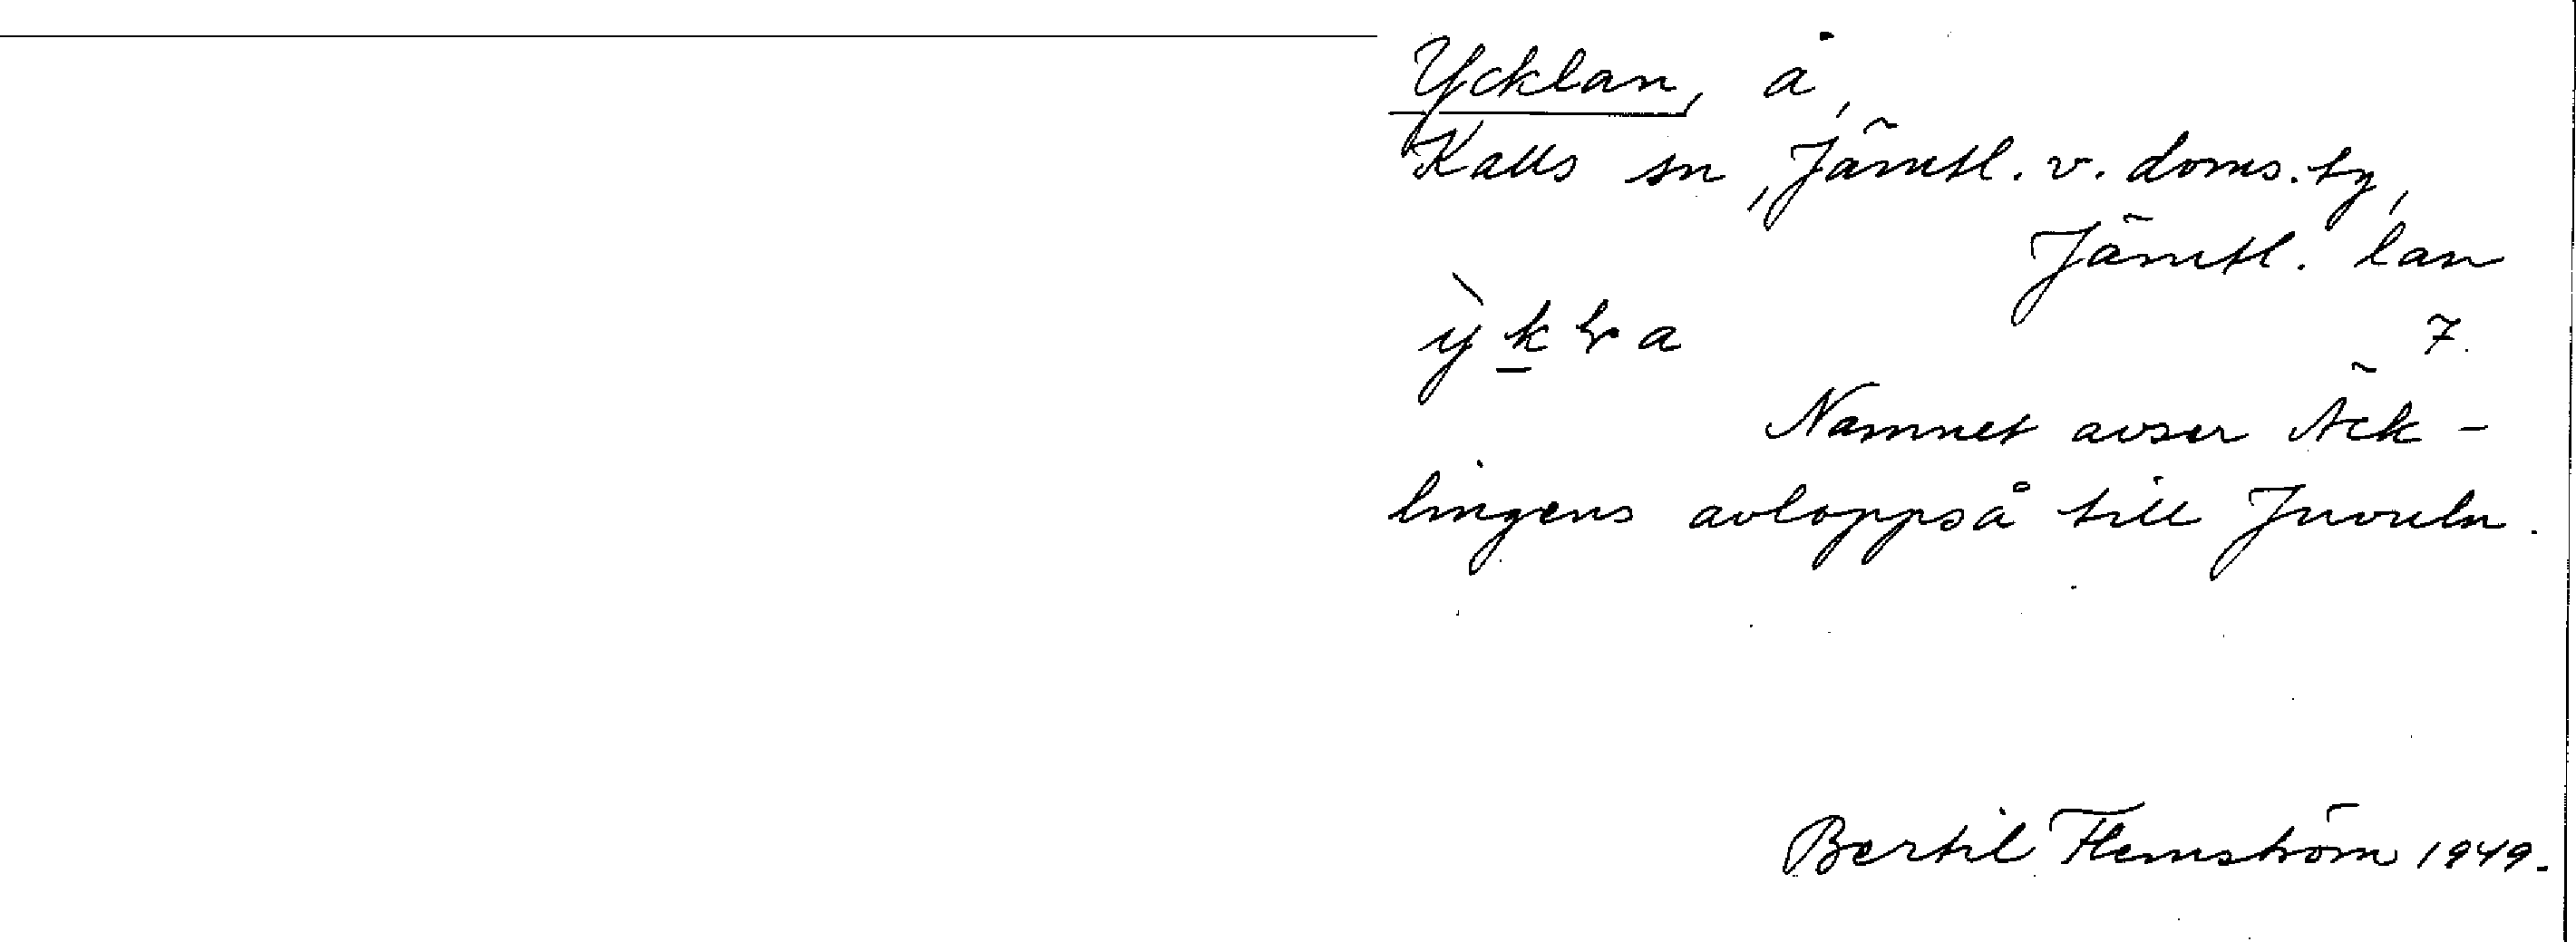 Ycklan, å,
Kalls sn, Jämtl. v. doms. tg,
Jämtl. län
7.
Namnet avser Äck-
lingens avloppså till Juvuln.
Bertil Flemström 1949.